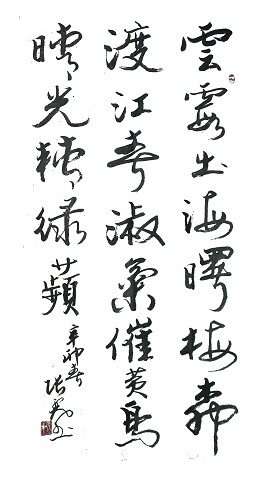 雲霞出海曙梅柳
渡江春淑氣催黄鳥
晴光轉緑蘋
辛卯春